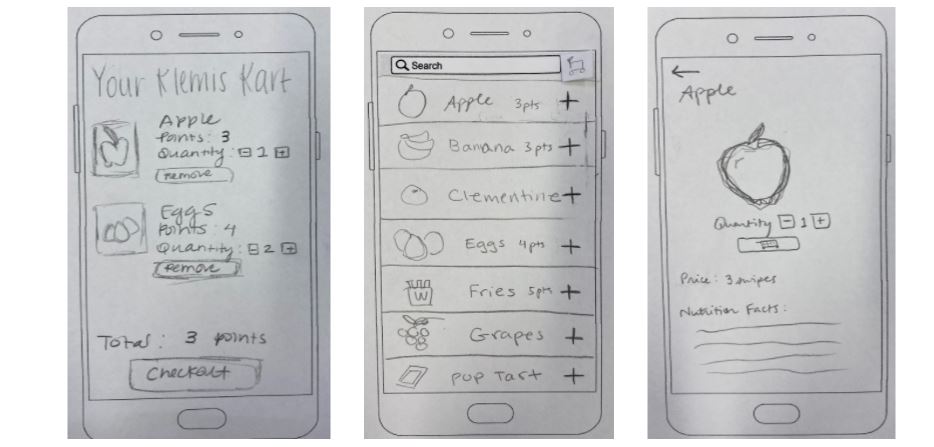 Your Klemis Kart
Apple
Points: 3
Quantity: - 1 +
remove
Eggs
Points: 4
Quantity: - 2 +
remove
Total: 3 points
Checkout
Search
Apple 3pts +
Banana 3pts +
Clementine +
Eggs 4pts +
W
Fries 5pts +
Grapes +
Pop Tart +
←
Apple
Quantity - 1 +
Price: 3 swipes
Nutrition Facts: